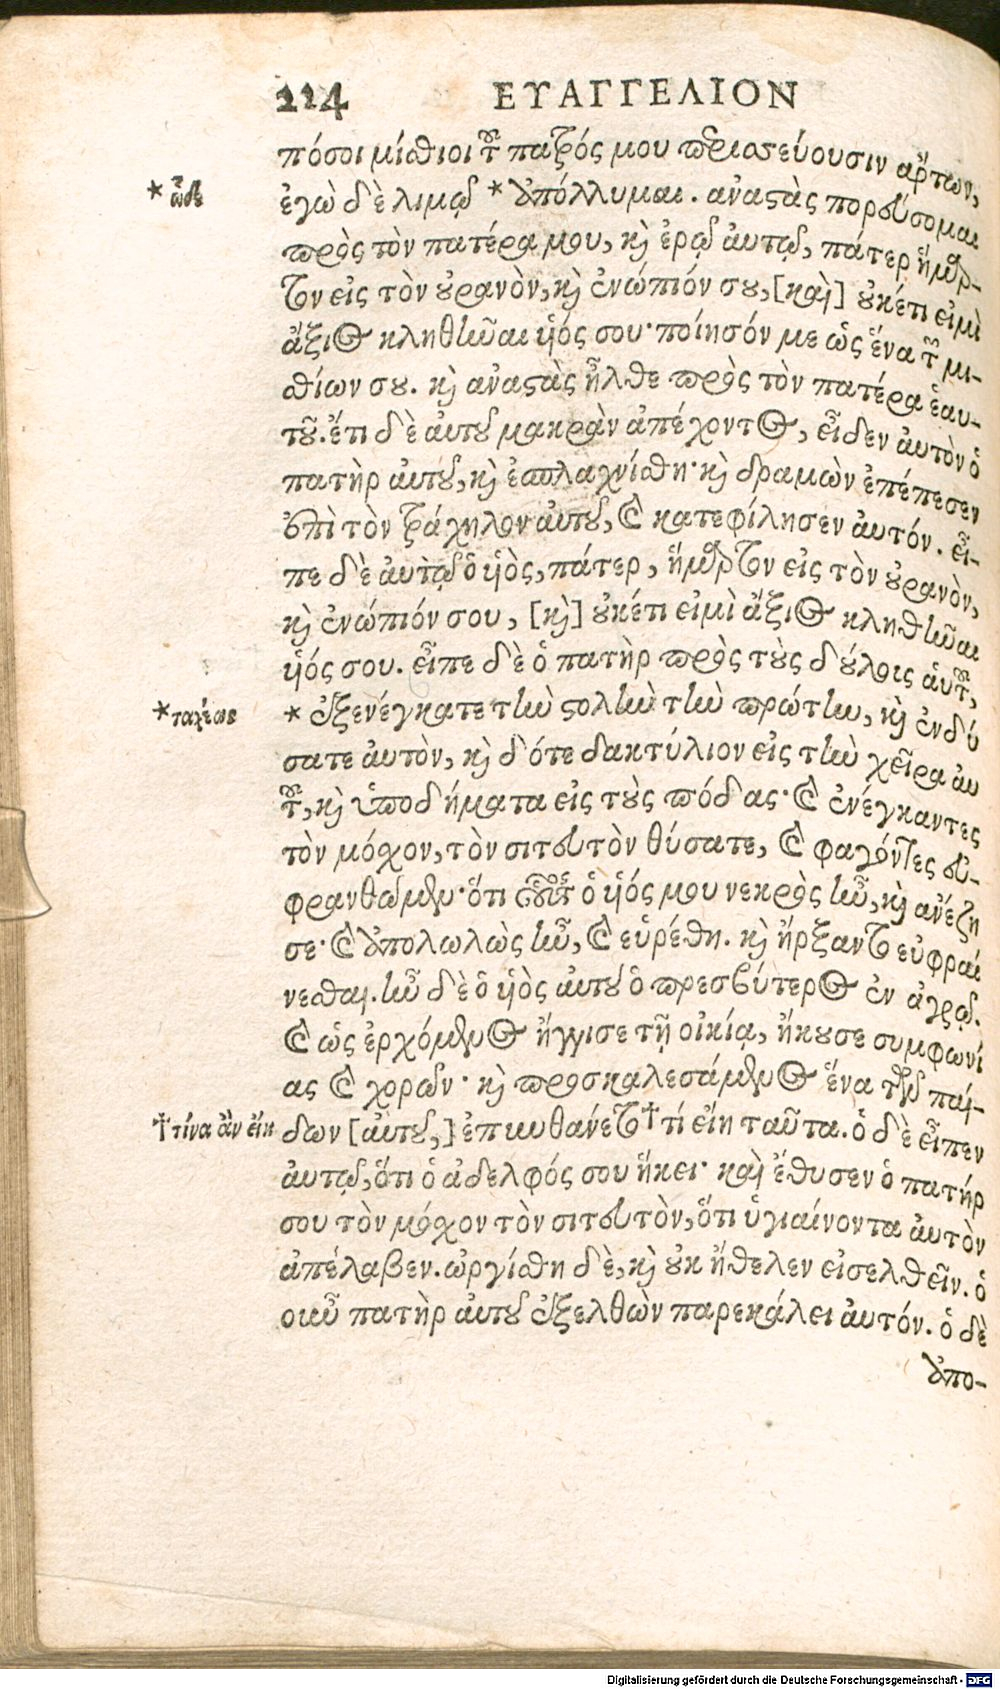 224 ΕΥΑΓΓΕΛΙΟΝ
πόσοι μίσθιοι τοῦ πατρός μου περισσεύουσιν ἄρτων,
* ὧδε
ἐγὼ δὲ λιμῷ * ἀπόλλυμαι. ἀναστὰς πορεύσομαι
πρὸς τὸν πατέρα μου, καὶ ἐρῶ αὐτῷ, πάτερ ἥμαρ-
τον εἰς τὸν οὐρανὸν, καὶ ἐνώπιόν σου, [καὶ] οὐκέτι εἰμὶ
ἄξιος κληθῆναι υἱός σου· ποίησόν με ὡς ἕνα τῶν μι-
σθίων σου. καὶ ἀναστὰς ἦλθε πρὸς τὸν πατέρα ἑαυ-
τοῦ. ἔτι δὲ αὐτοῦ μακρὰν ἀπέχοντος, εἶδεν αὐτὸν ὁ
πατὴρ αὐτοῦ, καὶ ἐσπλαχνίσθη· καὶ δραμὼν ἐπέπεσεν
ἐπὶ τὸν τράχηλον αὐτοῦ, καὶ κατεφίλησεν αὐτόν. εἶ-
πε δὲ αὐτῷ ὁ υἱὸς, πάτερ, ἥμαρτον εἰς τὸν οὐρανὸν,
καὶ ἐνώπιόν σου, [καὶ] οὐκέτι εἰμὶ ἄξιος κληθῆναι
υἱός σου. εἶπε δὲ ὁ πατὴρ πρὸς τοὺς δούλοις αὐτοῦ,
* ταχέως
* ἐξενέγκατε τὴν στολὴν τὴν πρώτην, καὶ ἐνδύ
σατε αὐτὸν, καὶ δότε δακτύλιον εἰς τὴν χεῖρα αὐ
τοῦ, καὶ ὑποδήματα εἰς τοὺς πόδας· καὶ ἐνέγκαντες
τὸν μόσχον, τὸν σιτευτὸν θύσατε, καὶ φαγόντες εὐ-
φρανθῶμεν· ὅτι οὗτος ὁ υἱός μου νεκρὸς ἦν, καὶ ἀνέζη
σε· καὶ ἀπολωλὼς ἦν, καὶ εὑρέθη. καὶ ἤρξαντο εὐφραί
νεσθαι. ἦν δὲ ὁ υἱὸς αὐτοῦ ὁ πρεσβύτερος ἐν ἀγρῷ.
καὶ ὡς ἐρχόμενος ἤγγισε τῇ οἰκίᾳ, ἤκουσε συμφωνί
ας καὶ χορῶν· καὶ προσκαλεσάμενος ἕνα τῶν παί-
† τίνα ἂν εἴη
δων [αὐτοῦ,] ἐπυνθάνετο † τί εἴη ταῦτα. ὁ δὲ εἶπεν
αὐτῷ, ὅτι ὁ ἀδελφός σου ἥκει· καὶ ἔθυσεν ὁ πατήρ
σου τὸν μόσχον τὸν σιτευτὸν, ὅτι ὑγιαίνοντα αὐτὸν
ἀπέλαβεν. ὠργίσθη δὲ, καὶ οὐκ ἤθελεν εἰσελθεῖν. ὁ
οὖν πατὴρ αὐτοῦ ἐξελθὼν παρεκάλει αὐτόν. ὁ δὲ
ἀπο-
Digitalisierung gefördert durch die Deutsche Forschungsgemeinschaft - DFG